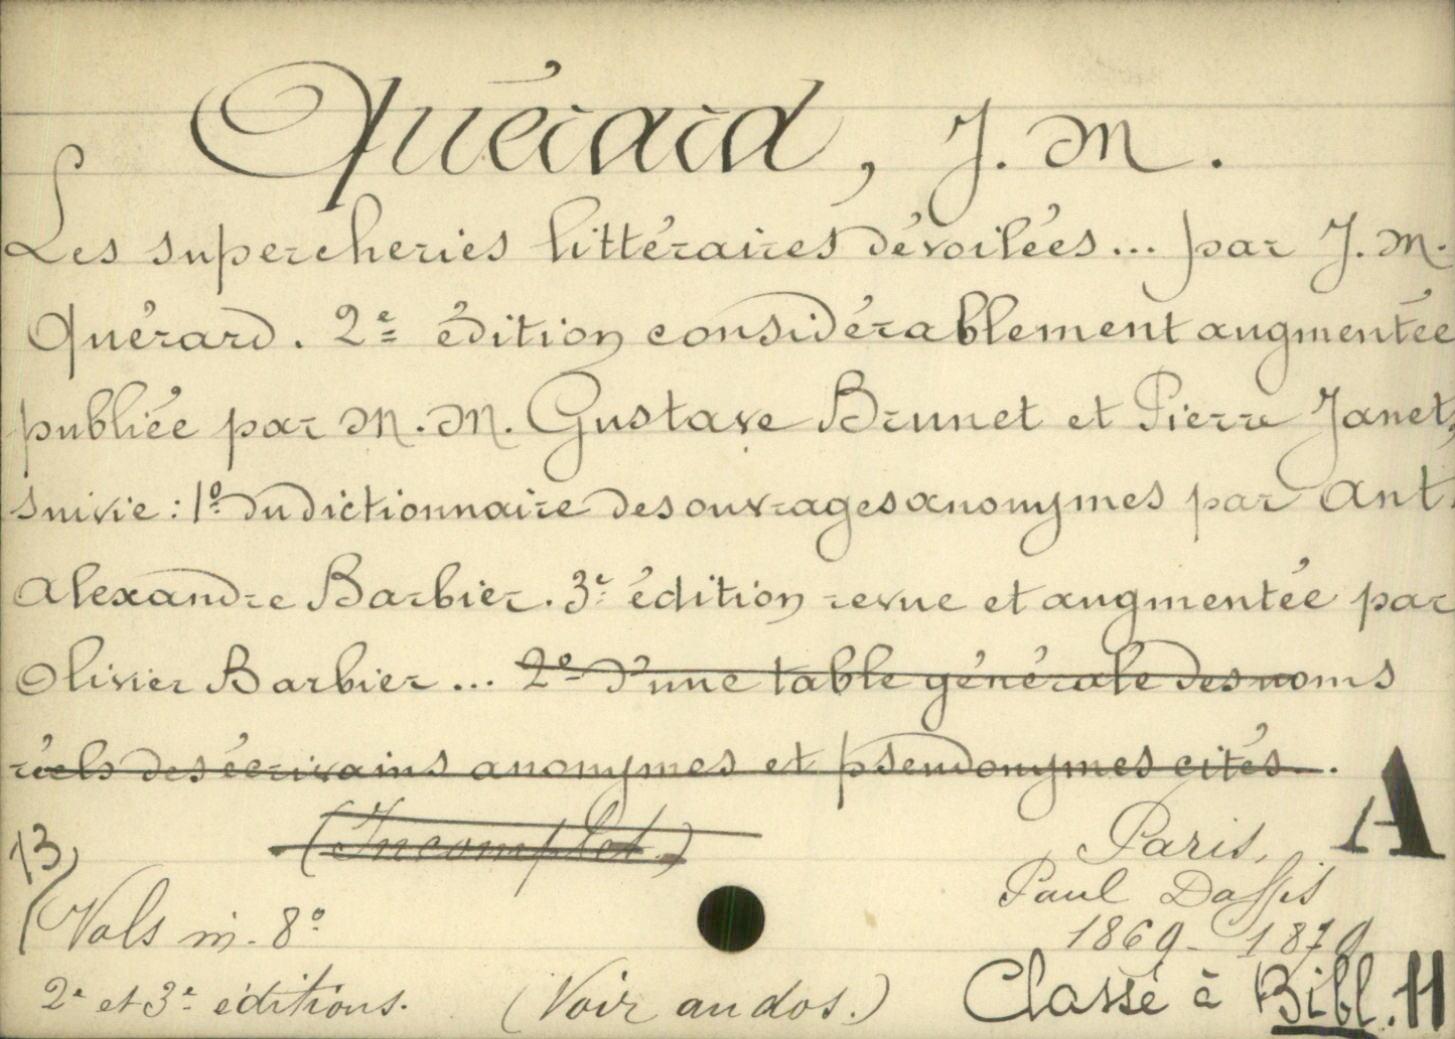 Quérard, J. M.
Les supercheries littéraires dévoilées... par J. M.
Quérard. 2e édition considérablement augmentée
publiée par M. M. Gustave Brunet et Pierre Janet,
suivie : 1o du dictionnaire des ouvrages anonymes par Ant.
Alexandre Barbier. 3e édition revue et augmentée par
Olivier Barbier... 2o d'une table générale des noms
réels des écrivains anonymes et pseudonymes cités..
(Incomplet)
A
Paris,
Paul Daffis
1869-1879
13
Vols in-8o
2e et 3e éditions.
(Voir au dos.)
Classé à Bibl. 11